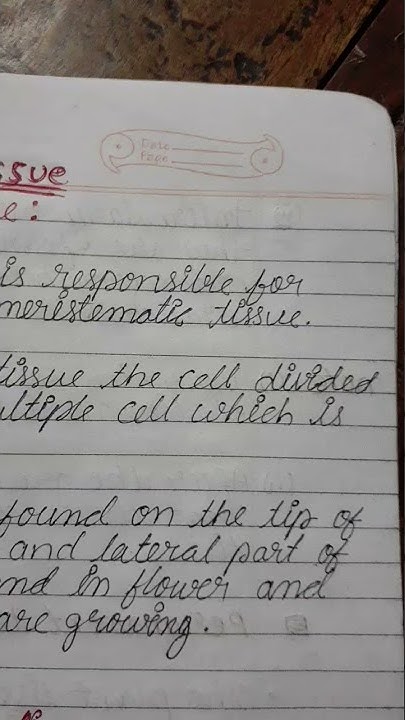 Date
Page
ssue
e:
is responsible for
meristematic tissue.
tissue the cell divided
ultiple cell which is
found on the tip of
and lateral part of
nd in flower and
are growing.